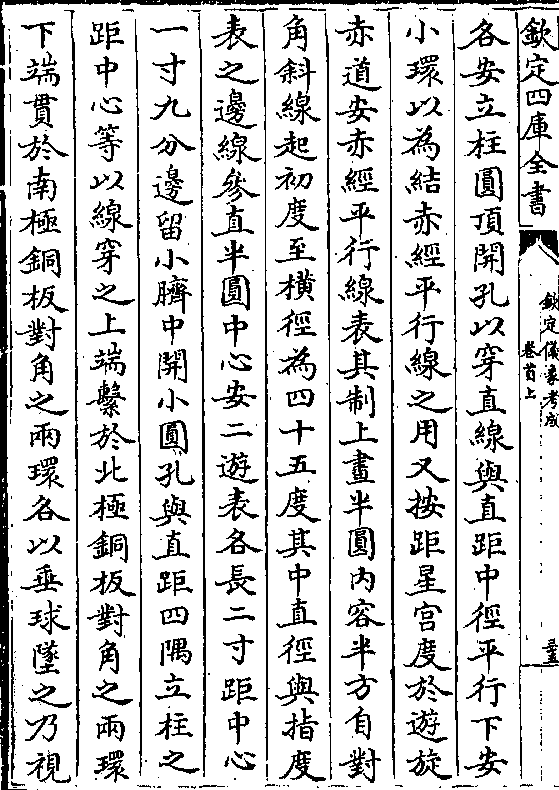 欽定四庫全書
欽定儀象考成
卷首上
各安立柱圓頂開孔以穿直線與直距中徑平行下安
小環以為結赤經平行線之用又按距星宮度於遊旋
赤道安赤經平行線表其制上畫半圓內容半方自對
角斜線起初度至橫徑為四十五度其中直徑與指度
表之邊線參直半圓中心安二遊表各長二寸距中心
一寸九分邊留小臍中開小圓孔與直距四隅立柱之
距中心等以線穿之上端繫於北極銅板對角之兩環
下端貫於南極銅板對角之兩環各以垂球墜之乃視